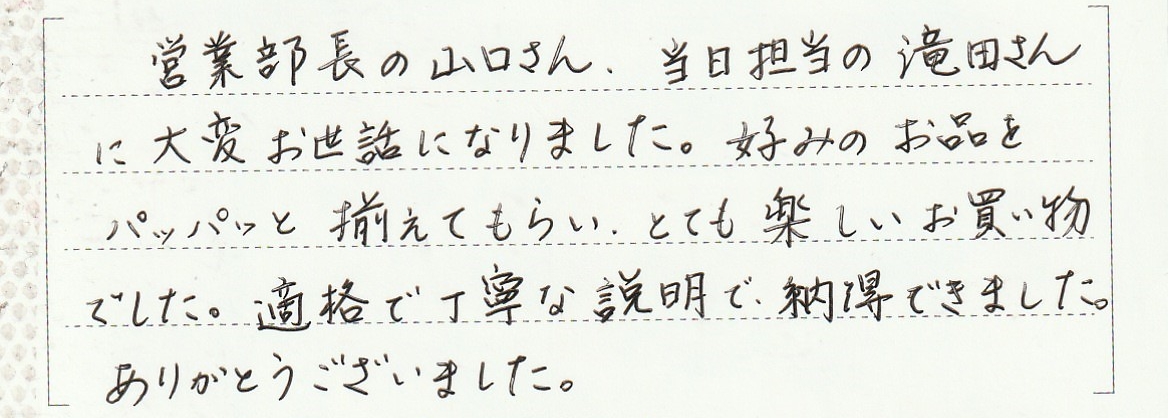 営業部長の山口さん、当日担当の滝田さん
に大変お世話になりました。好みのお品を
パッパッと揃えてもらい、とても楽しいお買い物
でした。適格で丁寧な説明で、納得できました。
ありがとうございました。